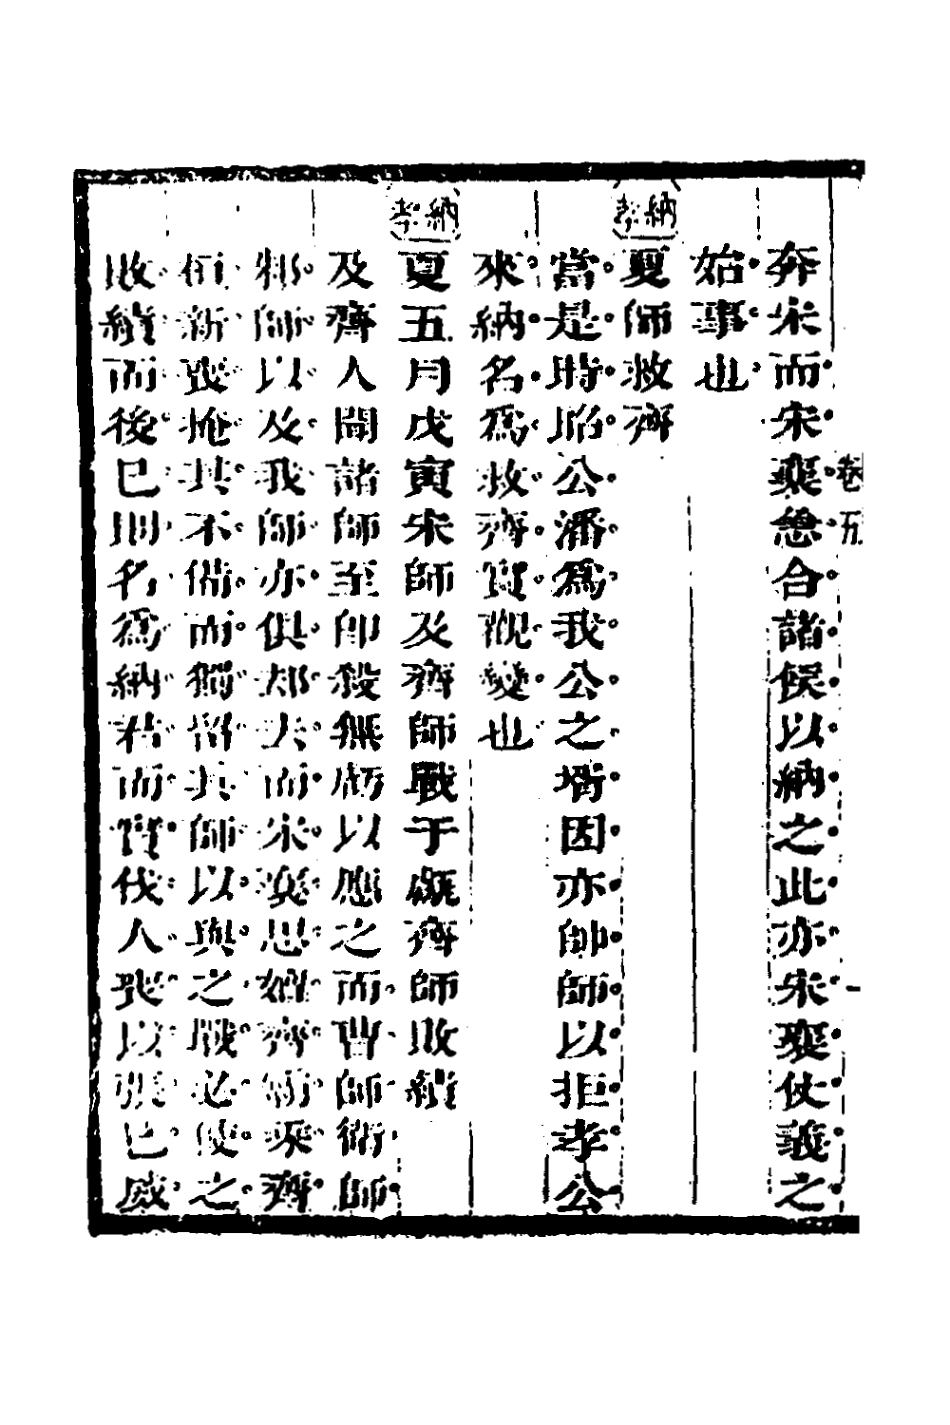 卷五
奔宋而宋襄怱合諸侯以納之此亦宋襄仗義之
始事也
納孝
夏師救齊
當是時昭公潘爲我公之壻因亦帥師以拒孝公
來納名爲救齊實觀變也
納孝
夏五月戊寅宋師及齊師戰于甗齊師敗績
及齊人聞諸師至即殺無虧以應之而曹師衛師
邾師以及我師亦俱却去而宋襄思嬗齊霸乘齊
桓新喪掩其不備而獨留其師以與之戰必使之
敗績而後已則名爲納君而實伐人喪以張已威